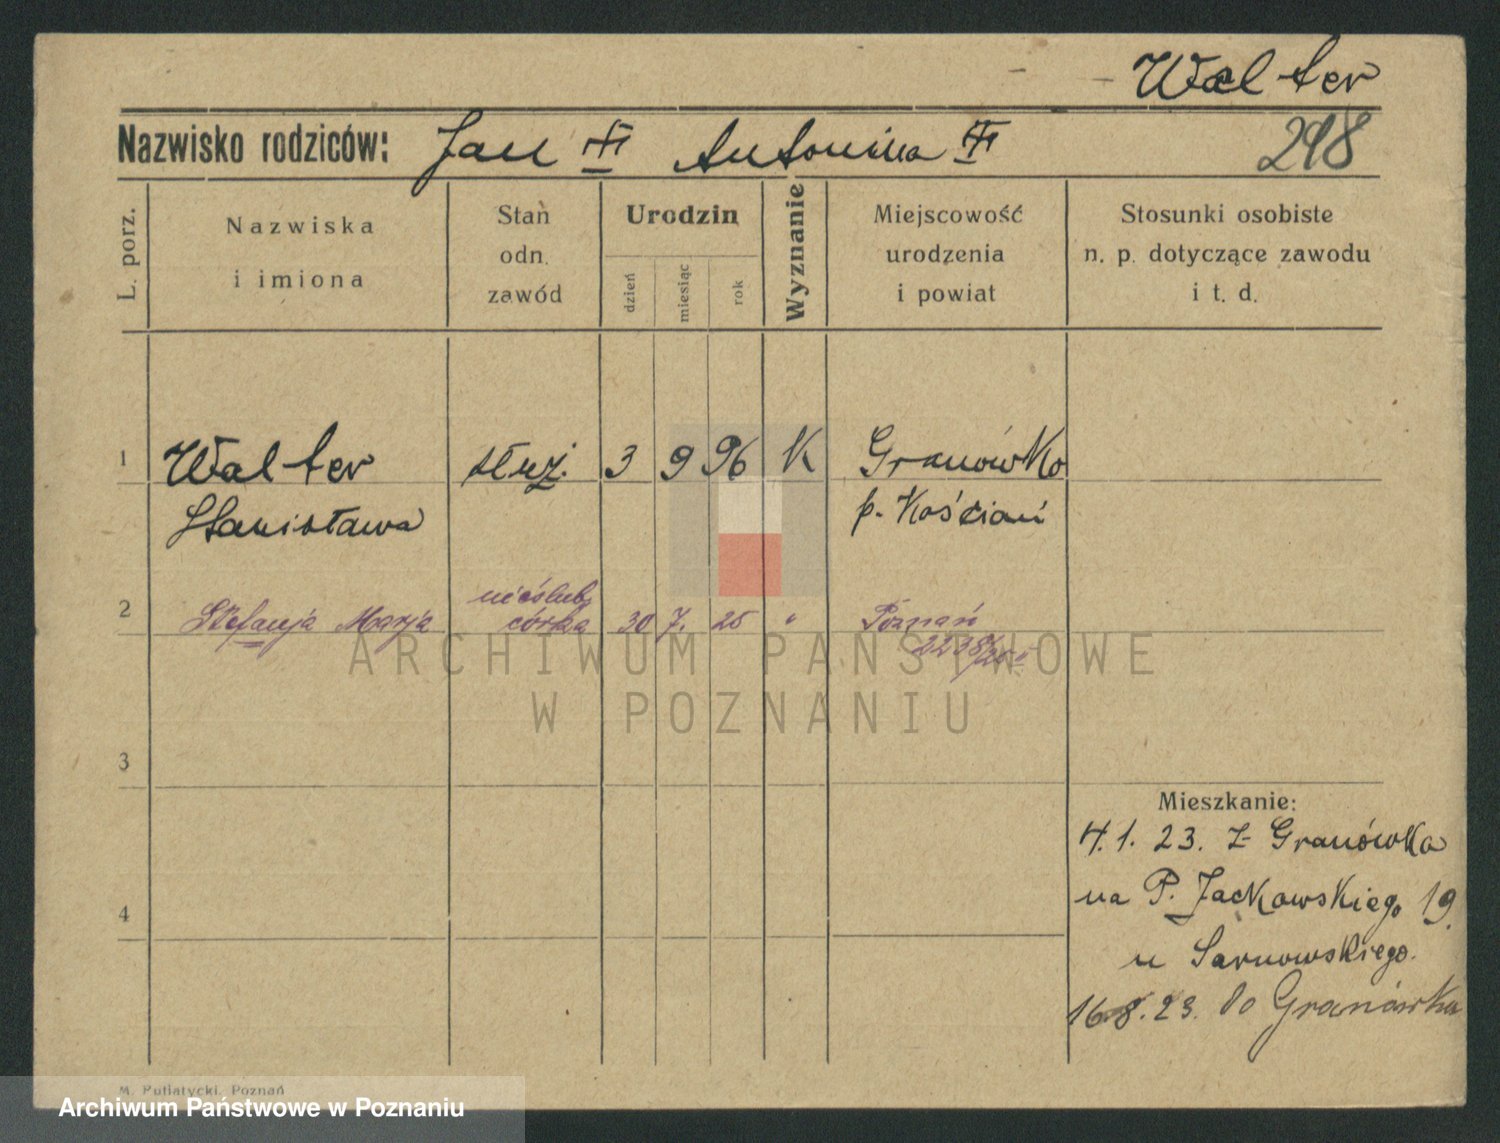 Walter
Nazwisko rodziców: Jan Antonina
248
L. porz.
Nazwiska i imiona
Stan odn. zawód
Urodzin
dzień miesiąc rok
Wyznanie
Miejscowość urodzenia i powiat
Stosunki osobiste n. p. dotyczące zawodu i t. d.
1 Walter służ. 3 9 96 K Granówko
Stanisława p. Kościan
2 Stefanja Marja nieślub. córka 30 7. 25 " Poznań
2238/25
ARCHIWUM PAŃSTWOWE
W POZNANIU
3
Mieszkanie:
4.1.23. z Granówka
na P. Jackowskiego 19.
4
u Sarnowskiego.
16.8.23. do Granówka
M. Putiatycki, Poznań
Archiwum Państwowe w Poznaniu